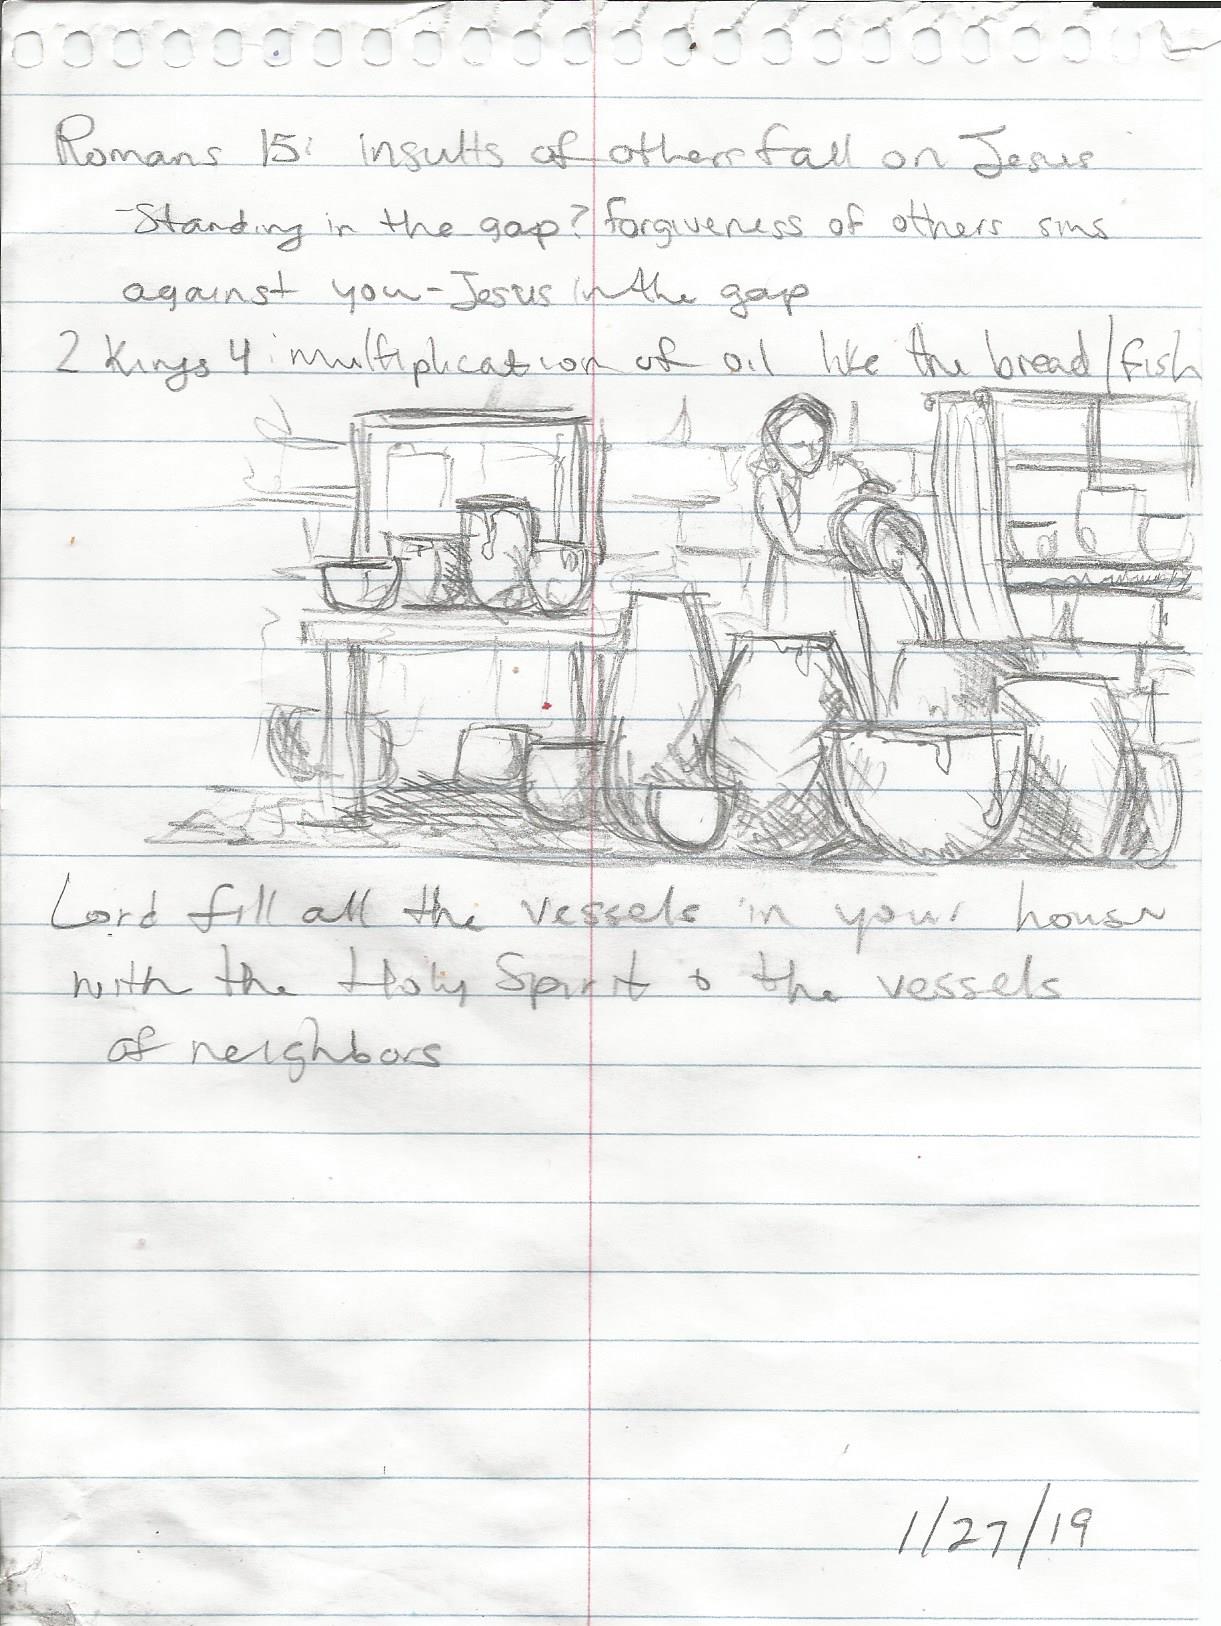 Romans 15: insults of others fall on Jesus
-Standing in the gap? forgiveness of others sins
against you - Jesus in the gap
2 Kings 4: multiplication of oil like the bread/fish
Lord fill all the vessels in your house
with the Holy Spirit & the vessels
of neighbors
1/27/19